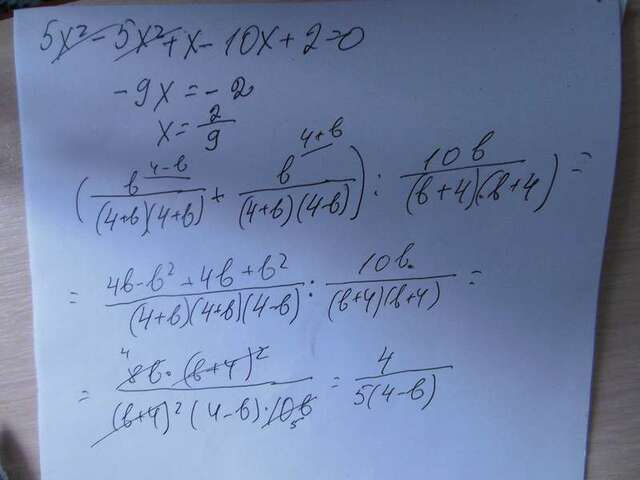 5x² - 5x² + x - 10x + 2 = 0
-9x = -2
x = 2/9
(b^(4-b) / (4+b)(4+b) + b^(4+b) / (4+b)(4-b)) : 10b / (b+4)(b+4) =
= 4b - b² + 4b + b² / (4+b)(4+b)(4-b) : 10b / (b+4)(b+4) =
= ⁴8b · (b+4)² / (b+4)² (4-b) · 10b ₅ = 4 / 5(4-b)